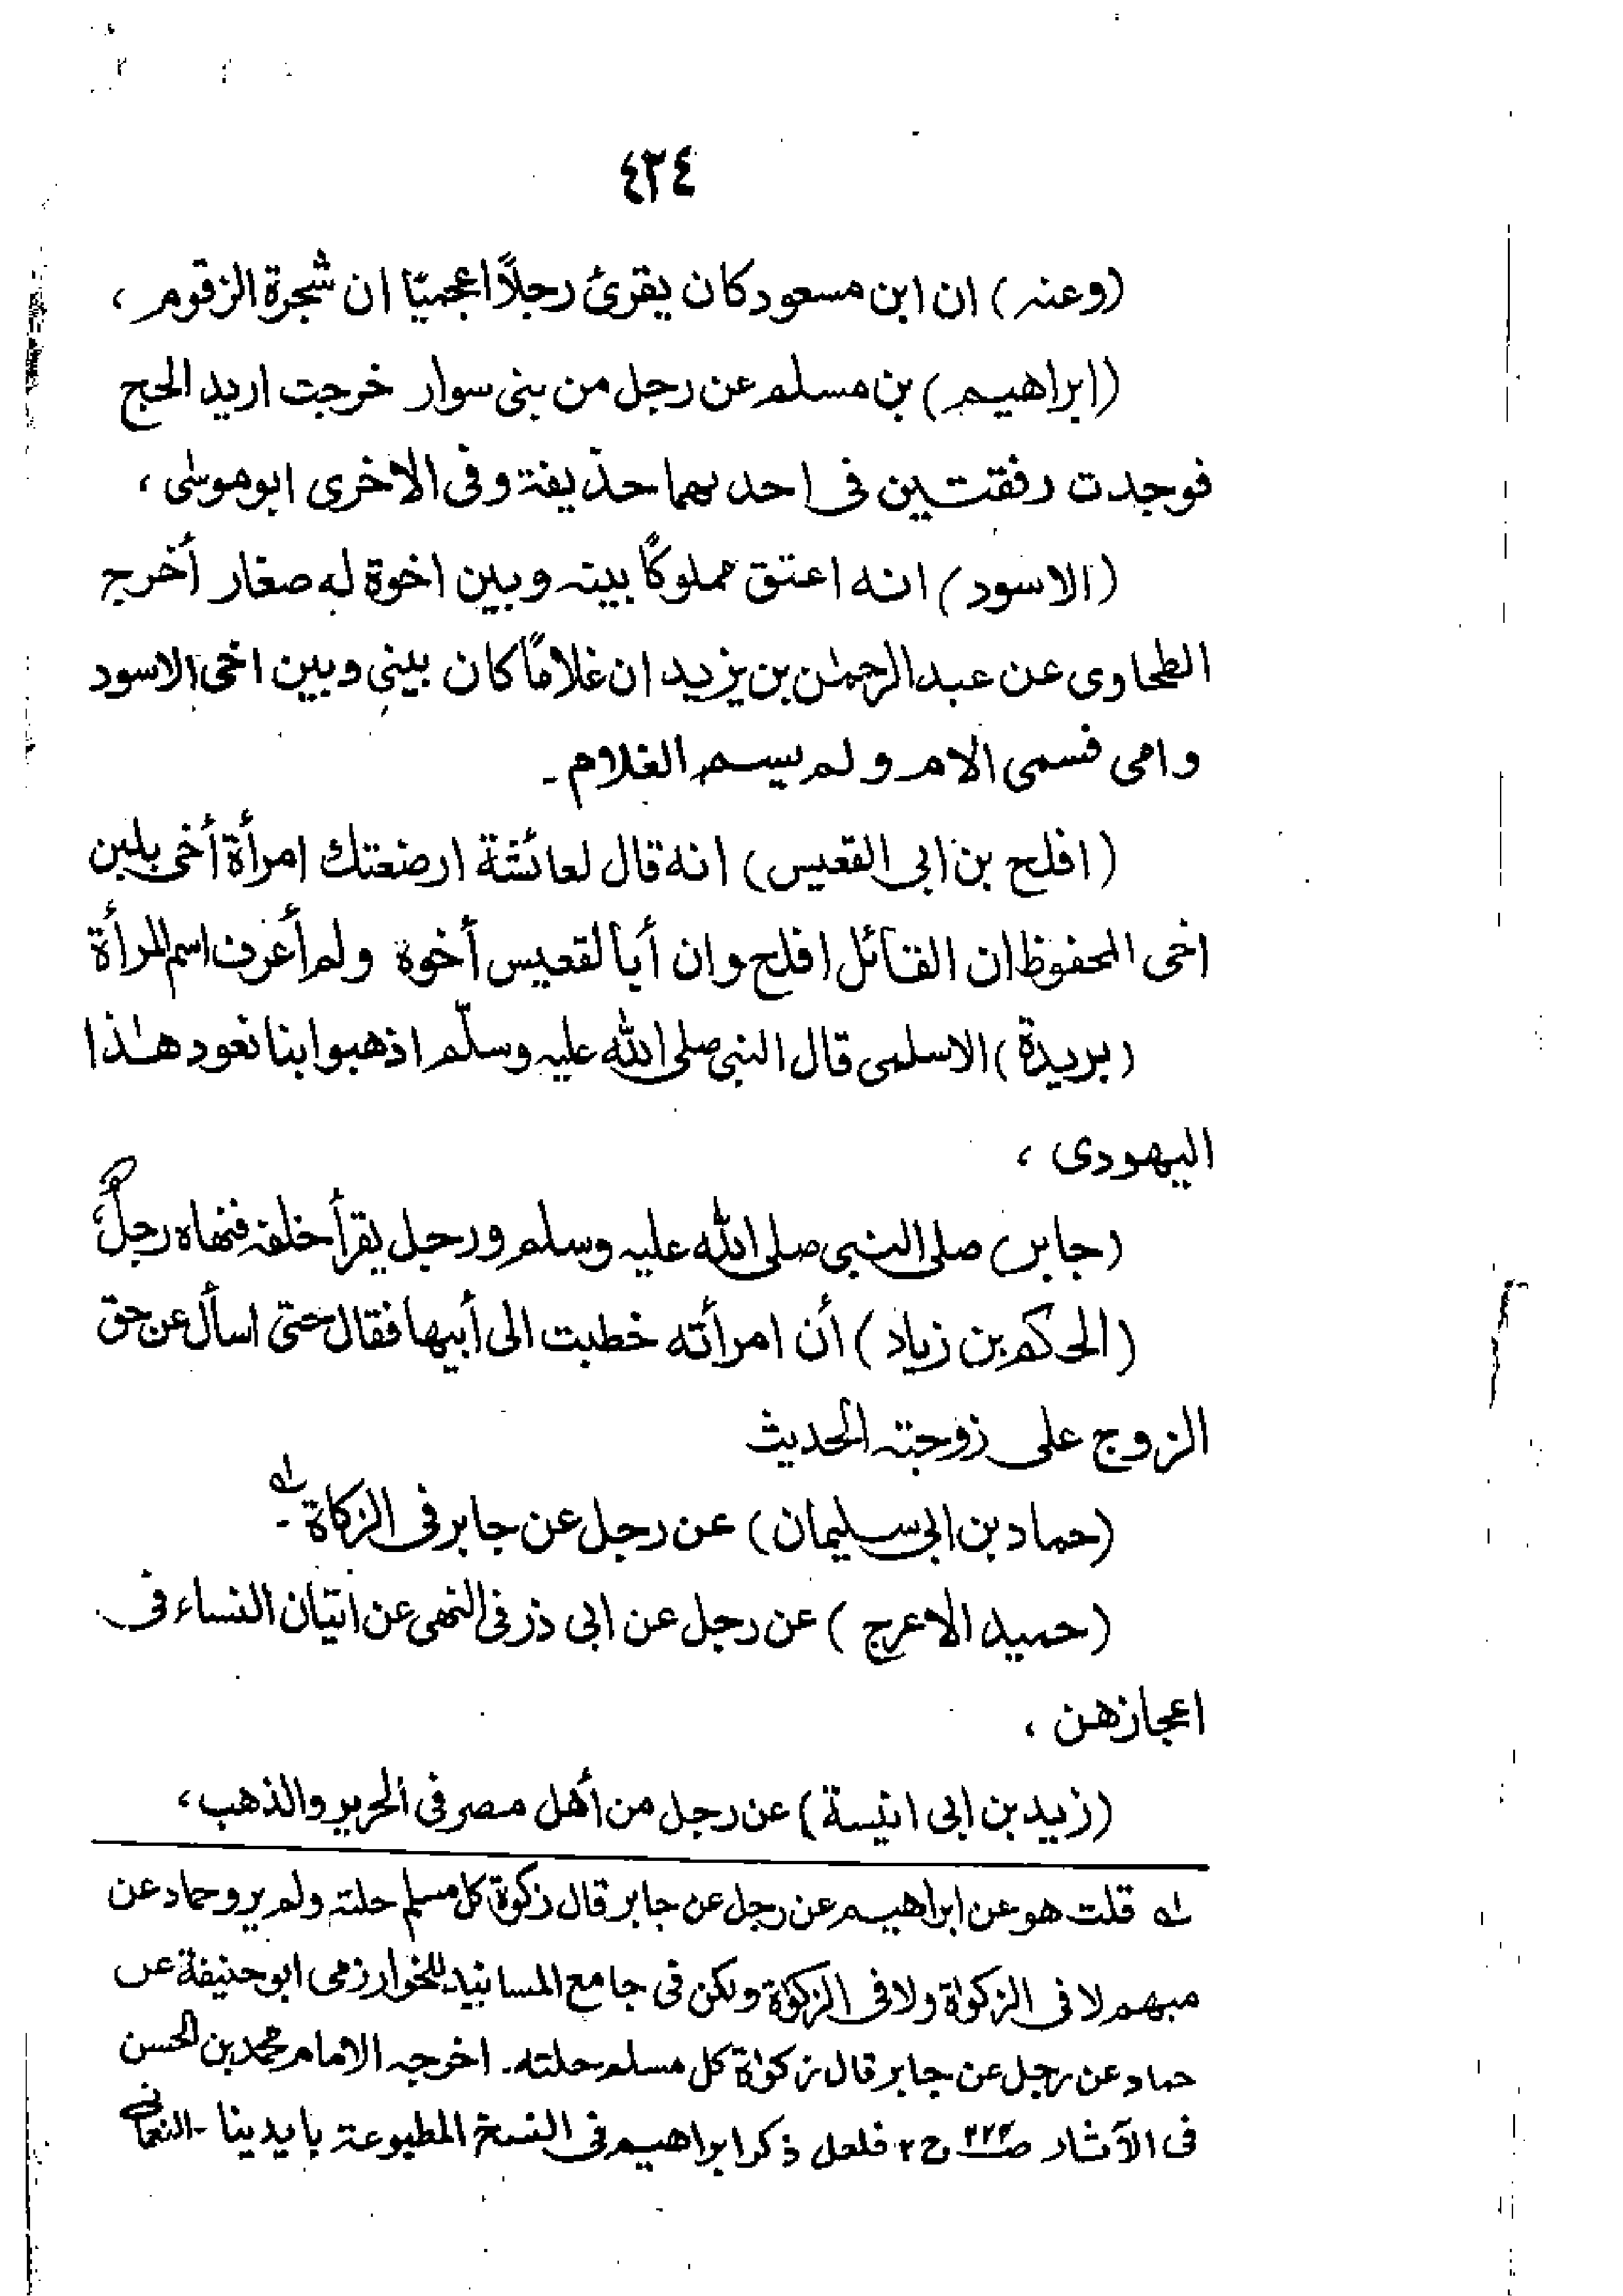 ٤٣٤
(وعنہ) ان ابن مسعود كان يقرئ رجلاً اعجميّا ان شجرة الزقوم ،
(ابراهيم) بن مسلم عن رجل من بنى سوار خرجت اريد الحج
فوجدت رفقتين فى احدیهما حذيفة وفى الاخرى ابوموسٰى ،
(الاسود) انه اعتق مملوكًا بينہ وبين اخوة له صغار أخرج
الطحاوى عن عبدالرحمٰن بن يزيد ان غلامًا كان بينى وبين اخى الاسود
وامى فسمى الام ولم يسم الغلام ۔
(افلح بن ابى القعيس) انه قال لعائشة ارضعتك امرأة أخى بلبن
اخى المحفوظ ان القائل افلح وان أبا لقعيس أخوة ولم أعرف اسم المرأة
(بريدة) الاسلمى قال النبى صلى الله عليہ وسلّم اذهبوا بنا نعود هٰذا
اليهودى ،
(جابر) صلى النبى صلى الله عليہ وسلم ورجل يقرأ خلفہ فنهاه رجلٌ
(الحكم بن زياد) أن امرأته خطبت الى أبيها فقال حتى اسأل عن حق
الزوج على زوجتہ الحديث
(حماد بن ابى سليمان) عن رجل عن جابر فى الزكاة ۔ لہ
(حميد الاعرج) عن رجل عن ابى ذر فى النهى عن اتيان النساء فى
اعجازهن ،
(زيد بن ابى انيسة) عن رجل من أهل مصر فى الحرير والذهب ،
لہ قلت هو عن ابراهيم عن رجل عن جابر قال زكوة كل مسلم حلتہ ولم يرو حماد عن
مبهم لا فى الزكوٰة ولا فى الزكوٰة ولكن فى جامع المسانيد للخوارزمى ابوحنيفة عن
حماد عن رجل عن جابر قال زكوٰة كل مسلم حلته۔ اخرجہ الامام محمد بن الحسن
فى الآثار صـ ٢٢٣ ج٢ فلعل ذكر ابراهيم فى النسخ المطبوعة بايدينا ۔ النعمانى